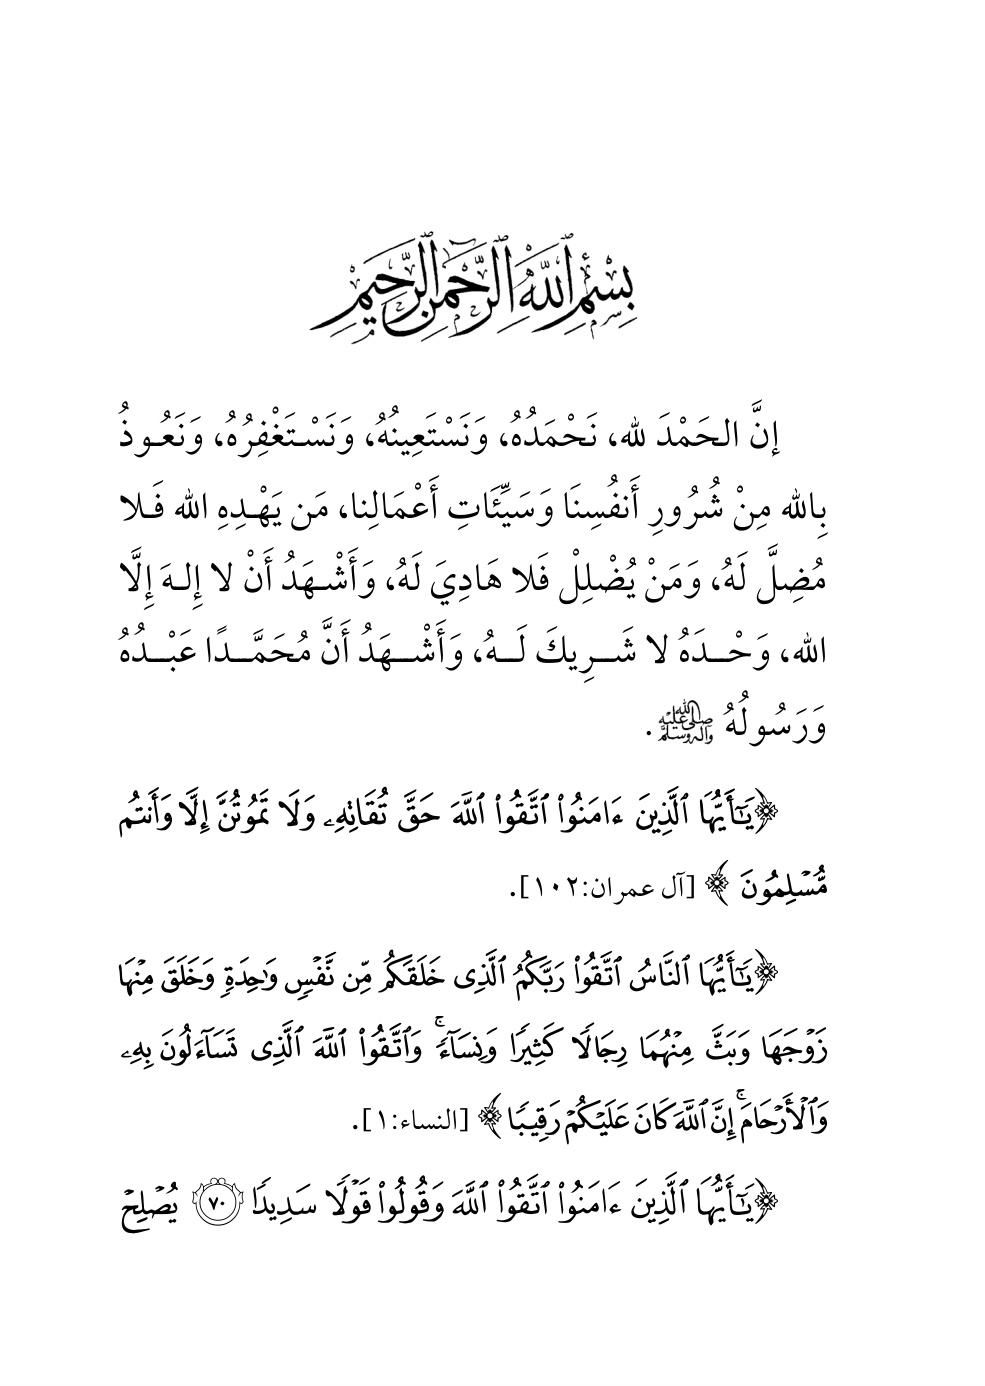 بِسْمِ اللَّهِ الرَّحْمَٰنِ الرَّحِيمِ
إنَّ الحَمْدَ لله، نَحْمَدُهُ، وَنَسْتَعِينُهُ، وَنَسْتَغْفِرُهُ، وَنَعُوذُ
بِالله مِنْ شُرُورِ أَنفُسِنَا وَسَيِّئَاتِ أَعْمَالِنا، مَن يَهْدِهِ الله فَلا
مُضِلَّ لَهُ، وَمَنْ يُضْلِلْ فَلا هَادِيَ لَهُ، وَأَشْهَدُ أَنْ لا إِلهَ إِلَّا
الله، وَحْدَهُ لا شَرِيكَ لَهُ، وَأَشْهَدُ أَنَّ مُحَمَّدًا عَبْدُهُ
وَرَسُولُهُ ﷺ.
﴿يَٰٓأَيُّهَا ٱلَّذِينَ ءَامَنُوا۟ ٱتَّقُوا۟ ٱللَّهَ حَقَّ تُقَاتِهِۦ وَلَا تَمُوتُنَّ إِلَّا وَأَنتُم
مُّسْلِمُونَ ﴾ [آل عمران:١٠٢].
﴿يَٰٓأَيُّهَا ٱلنَّاسُ ٱتَّقُوا۟ رَبَّكُمُ ٱلَّذِى خَلَقَكُم مِّن نَّفْسٍ وَٰحِدَةٍ وَخَلَقَ مِنْهَا
زَوْجَهَا وَبَثَّ مِنْهُمَا رِجَالًا كَثِيرًا وَنِسَآءً ۚ وَٱتَّقُوا۟ ٱللَّهَ ٱلَّذِى تَسَآءَلُونَ بِهِۦ
وَٱلْأَرْحَامَ ۚ إِنَّ ٱللَّهَ كَانَ عَلَيْكُمْ رَقِيبًا ﴾ [النساء:١].
﴿يَٰٓأَيُّهَا ٱلَّذِينَ ءَامَنُوا۟ ٱتَّقُوا۟ ٱللَّهَ وَقُولُوا۟ قَوْلًا سَدِيدًا ٧٠ يُصْلِحْ